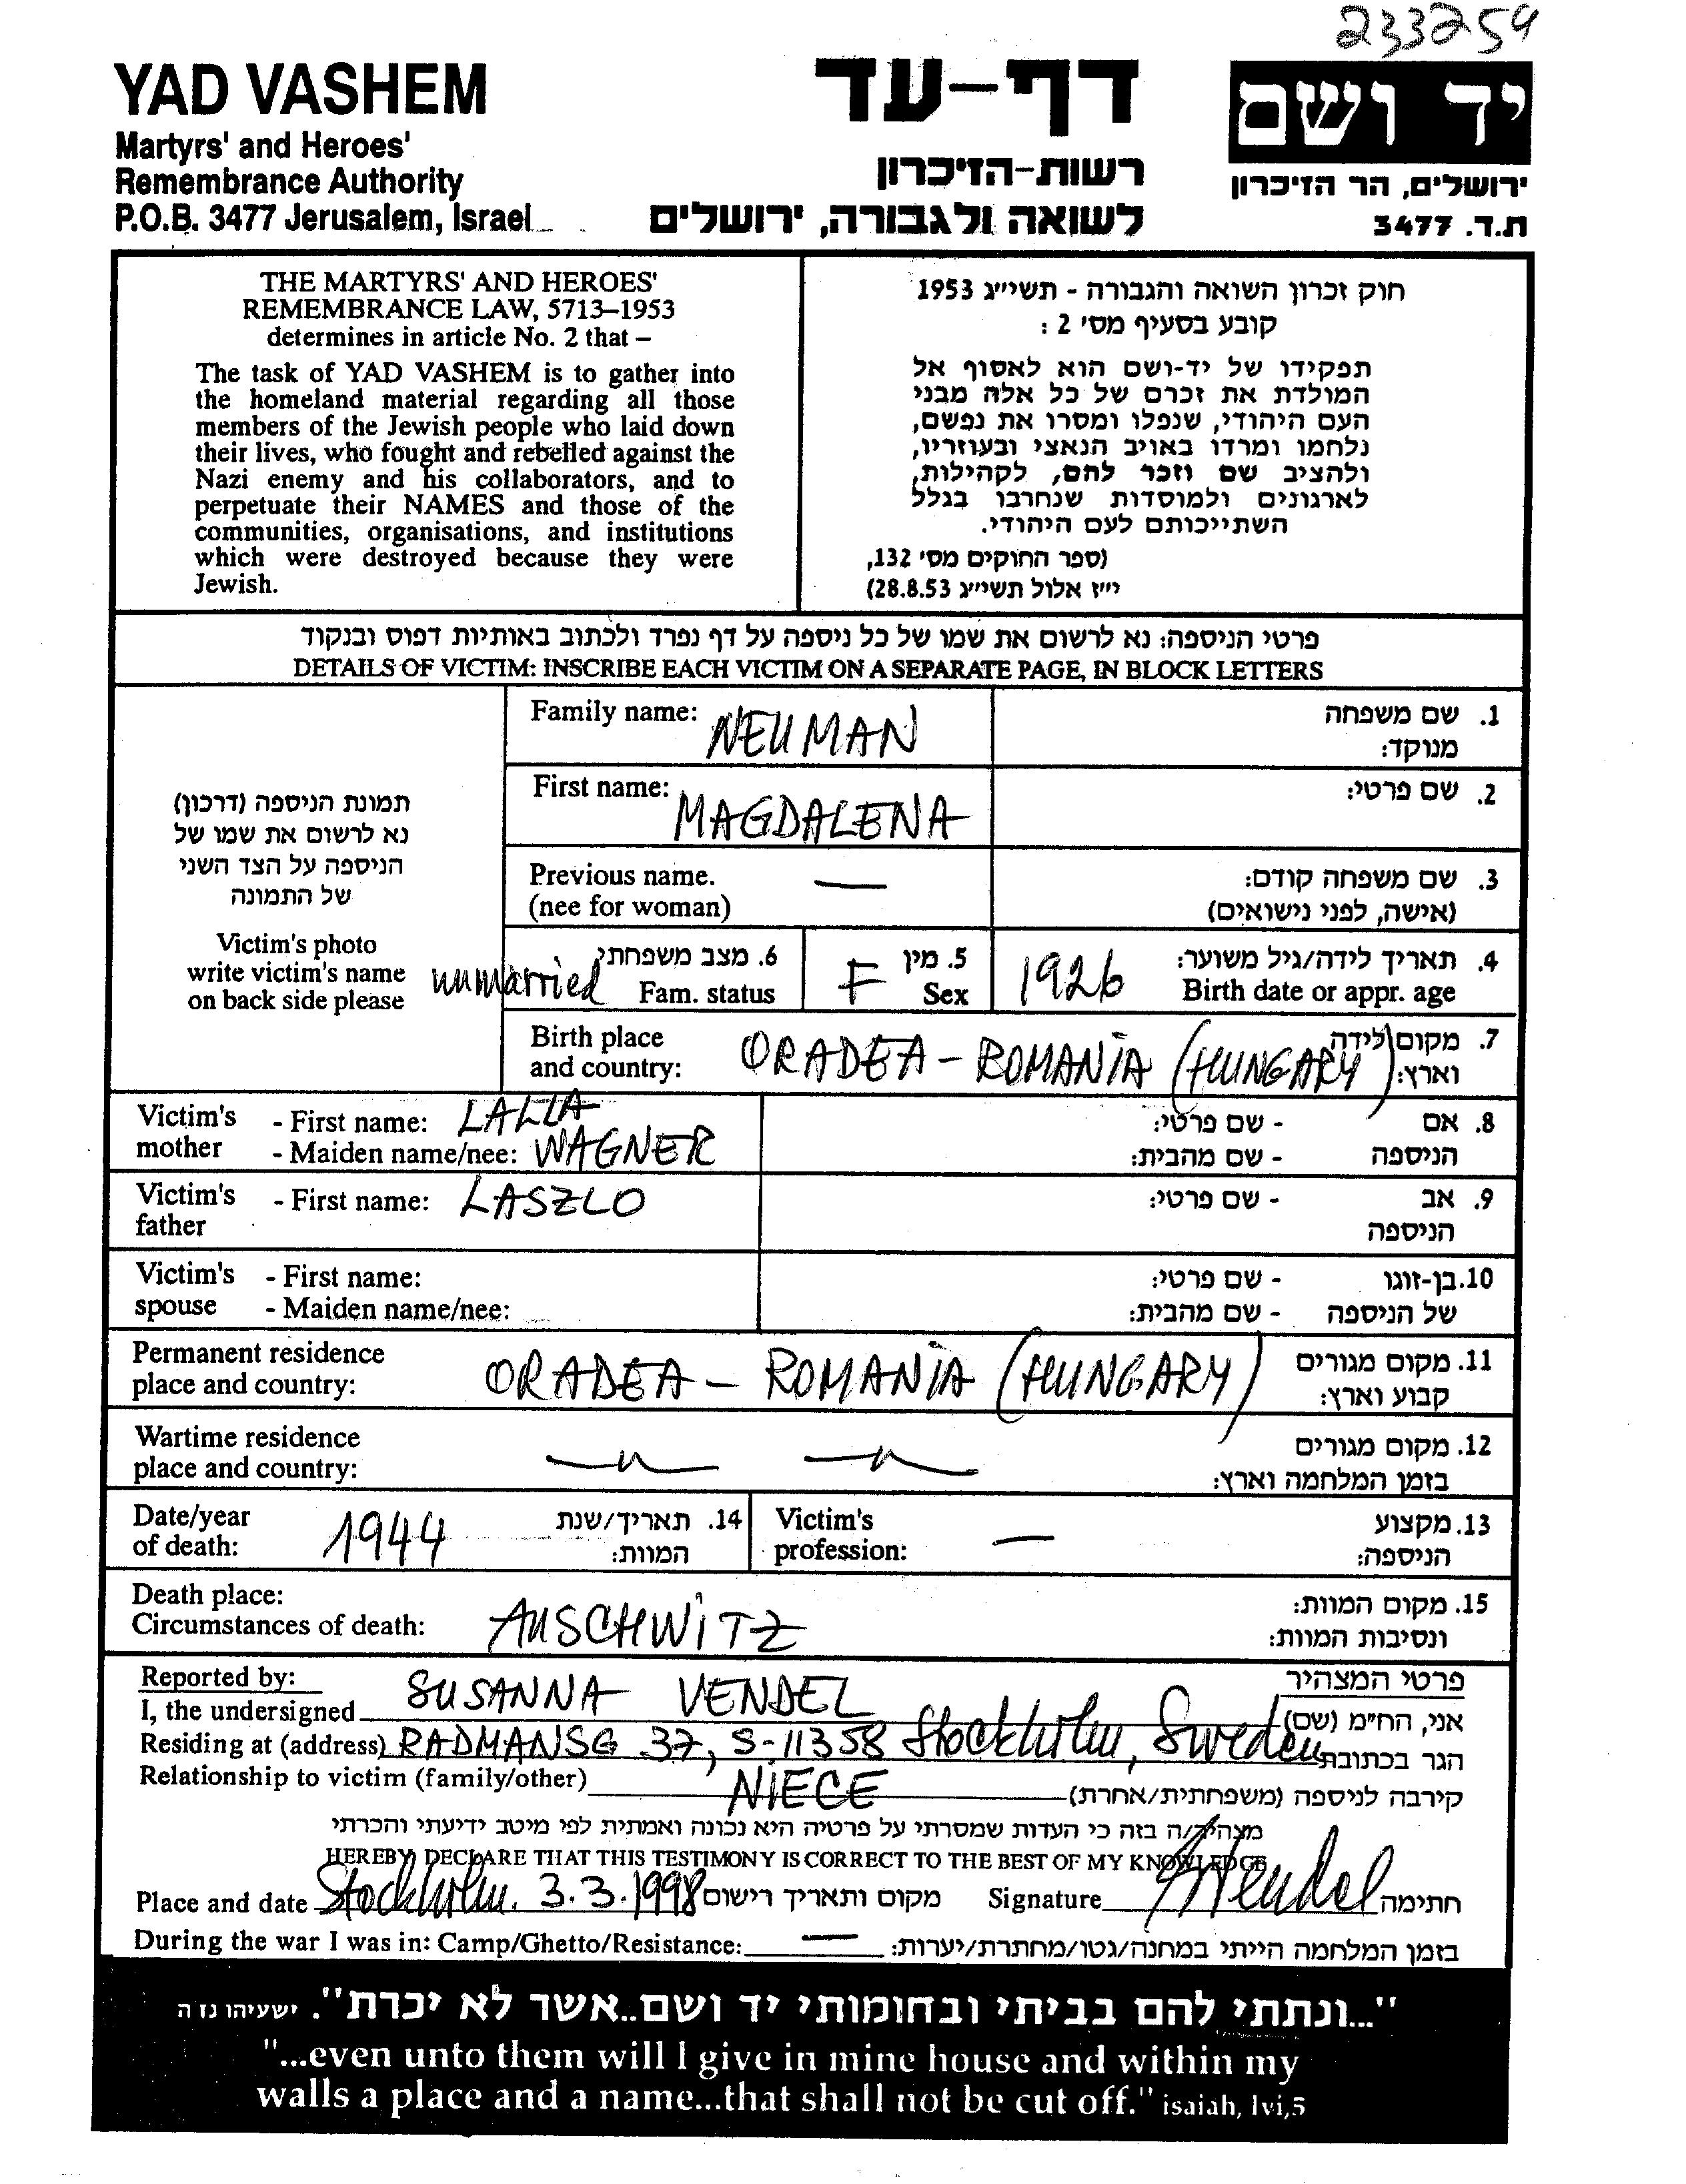 233254
YAD VASHEM
Martyrs' and Heroes'
Remembrance Authority
P.O.B. 3477 Jerusalem, Israel
דף-עד
רשות-הזיכרון
לשואה ולגבורה, ירושלים
יד ושם
ירושלים, הר הזיכרון
ת.ד. 3477
THE MARTYRS' AND HEROES'
REMEMBRANCE LAW, 5713–1953
determines in article No. 2 that –
The task of YAD VASHEM is to gather into
the homeland material regarding all those
members of the Jewish people who laid down
their lives, who fought and rebelled against the
Nazi enemy and his collaborators, and to
perpetuate their NAMES and those of the
communities, organisations, and institutions
which were destroyed because they were
Jewish.
חוק זכרון השואה והגבורה - תשי״ג 1953
קובע בסעיף מס׳ 2 :
תפקידו של יד-ושם הוא לאסוף אל
המולדת את זכרם של כל אלה מבני
העם היהודי, שנפלו ומסרו את נפשם,
נלחמו ומרדו באויב הנאצי ובעוזריו,
ולהציב שם וזכר להם, לקהילות,
לארגונים ולמוסדות שנחרבו בגלל
השתייכותם לעם היהודי.
(ספר החוקים מס׳ 132,
י״ז אלול תשי״ג 28.8.53)
פרטי הניספה: נא לרשום את שמו של כל ניספה על דף נפרד ולכתוב באותיות דפוס ובנקוד
DETAILS OF VICTIM: INSCRIBE EACH VICTIM ON A SEPARATE PAGE, IN BLOCK LETTERS
תמונת הניספה (דרכון)
נא לרשום את שמו של
הניספה על הצד השני
של התמונה
Victim's photo
write victim's name
on back side please
Family name: NEUMAN
1. שם משפחה
מנוקד:
First name: MAGDALENA
2. שם פרטי:
Previous name. —
(nee for woman)
3. שם משפחה קודם:
(אישה, לפני נישואים)
unmarried
6. מצב משפחתי
Fam. status
F
5. מין
Sex
1926
4. תאריך לידה/גיל משוער:
Birth date or appr. age
Birth place
and country: ORADEA – ROMANIA (HUNGARY)
7. מקום לידה
וארץ:
Victim's mother - First name: LALIA
- Maiden name/nee: WAGNER
8. אם הניספה - שם פרטי:
- שם מהבית:
Victim's father - First name: LASZLO
9. אב הניספה - שם פרטי:
Victim's spouse - First name:
- Maiden name/nee:
10. בן-זוגו של הניספה - שם פרטי:
- שם מהבית:
Permanent residence
place and country: ORADEA – ROMANIA (HUNGARY)
11. מקום מגורים
קבוע וארץ:
Wartime residence
place and country: —〃— —〃—
12. מקום מגורים
בזמן המלחמה וארץ:
Date/year
of death: 1944
14. תאריך/שנת
המוות:
Victim's
profession: —
13. מקצוע
הניספה:
Death place:
Circumstances of death: AUSCHWITZ
15. מקום המוות:
ונסיבות המוות:
Reported by:
I, the undersigned SUSANNA VENDEL
פרטי המצהיר
אני, הח״מ (שם)
Residing at (address) RADMANSG 37, S-11358 Stockholm, Sweden
הגר בכתובת
Relationship to victim (family/other) NIECE
קירבה לניספה (משפחתית/אחרת)
מצהיר/ה בזה כי העדות שמסרתי על פרטיה היא נכונה ואמתית לפי מיטב ידיעתי והכרתי
HEREBY DECLARE THAT THIS TESTIMONY IS CORRECT TO THE BEST OF MY KNOWLEDGE
Place and date Stockholm. 3.3.1998 מקום ותאריך רישום
Signature Vendel חתימה
During the war I was in: Camp/Ghetto/Resistance: — בזמן המלחמה הייתי במחנה/גטו/מחתרת/יערות:
"...ונתתי להם בביתי ובחומותי יד ושם..אשר לא יכרת". ישעיהו נז ה
"...even unto them will I give in mine house and within my
walls a place and a name...that shall not be cut off." isaiah, lvi,5